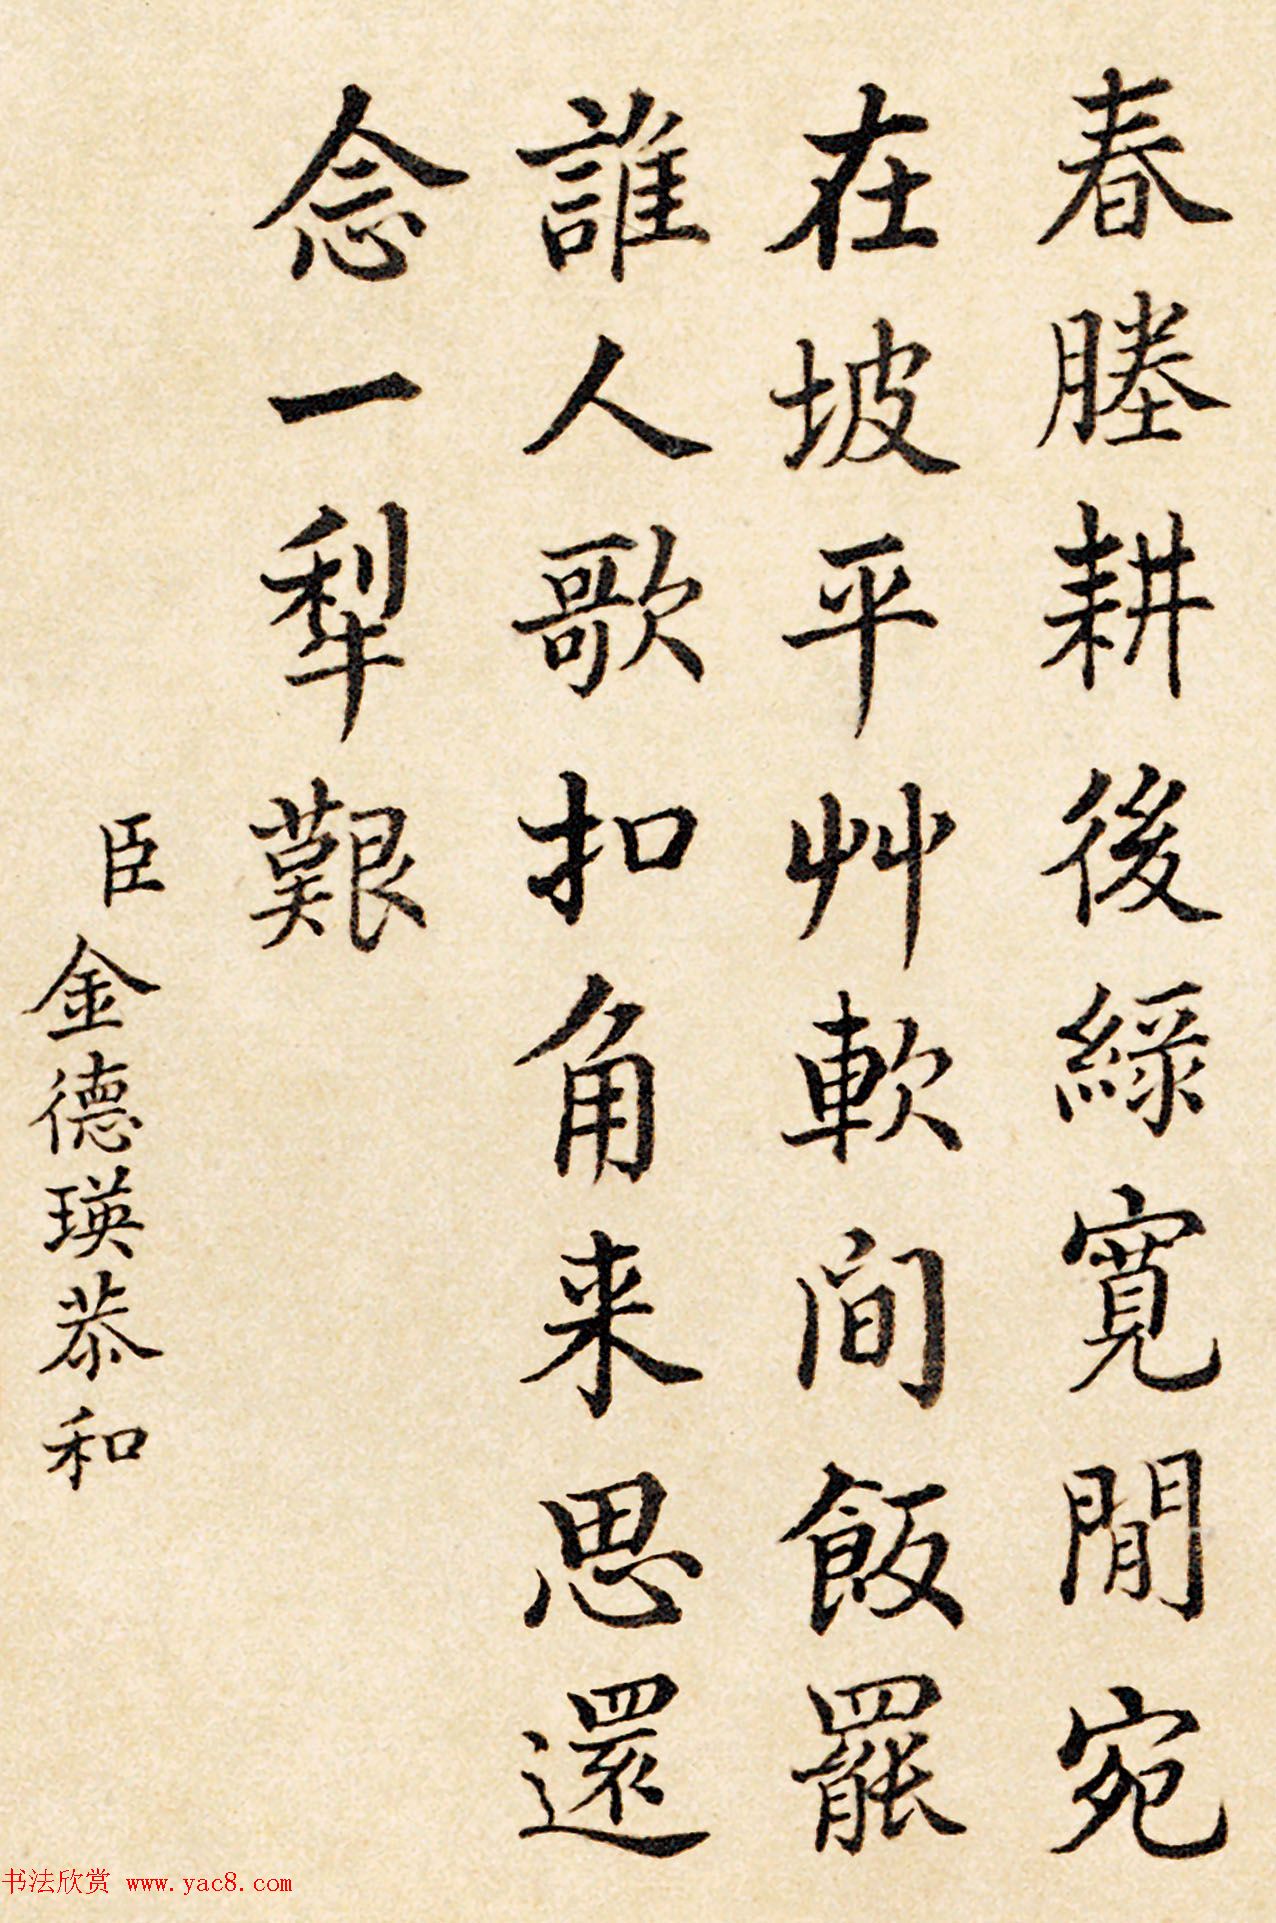 春塍耕後綠寬閒宛
在坡平艸軟間飯罷
誰人歌扣角来思還
念一犁艱
臣金德瑛恭和
书法欣赏 www.yac8.com